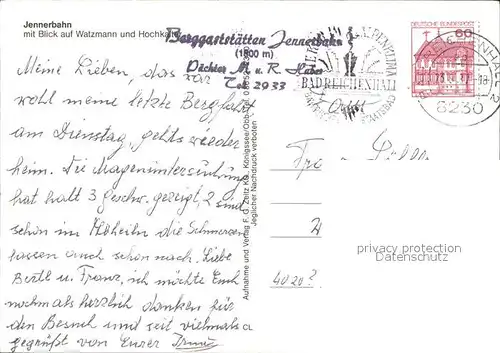 Jennerbahn
mit Blick auf Watzmann und Hochkalter
Berggaststätten Jennerbahn
(1800 m)
Pächter M. u. R. Huber
Tel. 2933
BAD REICHENHALL
STAATSBAD
DEUTSCHE BUNDESPOST
60
8230
Meine Lieben, das war
wohl meine letzte Bergfahrt
am Dienstag, gehts wieder
heim. Die Magenuntersuchung
hat halt 3 Geschw. gezeigt, 2 sind
schon im Abheilen die Schmerzen
lassen auch schon nach. Liebe
Bertl u. Franz, ich möchte Euch
nochmals herzlich danken für
den Besuch und seit vielmals
gegrüßt von Eurer
Aufnahme und Verlag F. G. Zeitz KG., Königssee/Obb.
Jeglicher Nachdruck verboten
4020?
privacy protection
Datenschutz